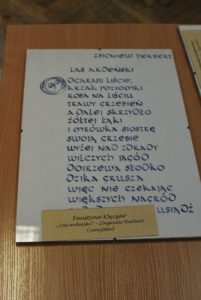 ZBIGNIEW HERBERT
LAS ARDEŃSKI
OGARNIJ LIŚCIE:
KRZAK POZIOMKI
ROSA NA LIŚCIU
TRAWY GRZEBIEŃ
A DALEJ SKRZYDŁO
ŻÓŁTEJ ŁĄKI
I MRÓWKA SIOSTRĘ
SWOJĄ GRZEBIE
WYŻEJ NAD ZDRADY
WILCZYCH JAGÓD
DOJRZEWA SŁODKO
DZIKA GRUSZA
WIĘC NIE CZEKAJĄC
WIĘKSZYCH NAGRÓD
USIĄDŹ
Faustyna Klęczar
„Las ardeński" - Zbigniew Herbert
(uncjała)